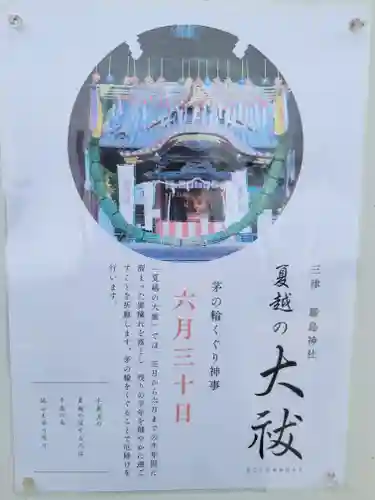 三津 厳島神社
夏越の大祓
茅の輪くぐり神事
六月三十日
「夏越の大祓」では、正月から六月までの半年間に
溜まった罪穢れを落とし、残りの半年を健やかに過ご
すことを祈願します。茅の輪をくぐることで厄除けを
行います。